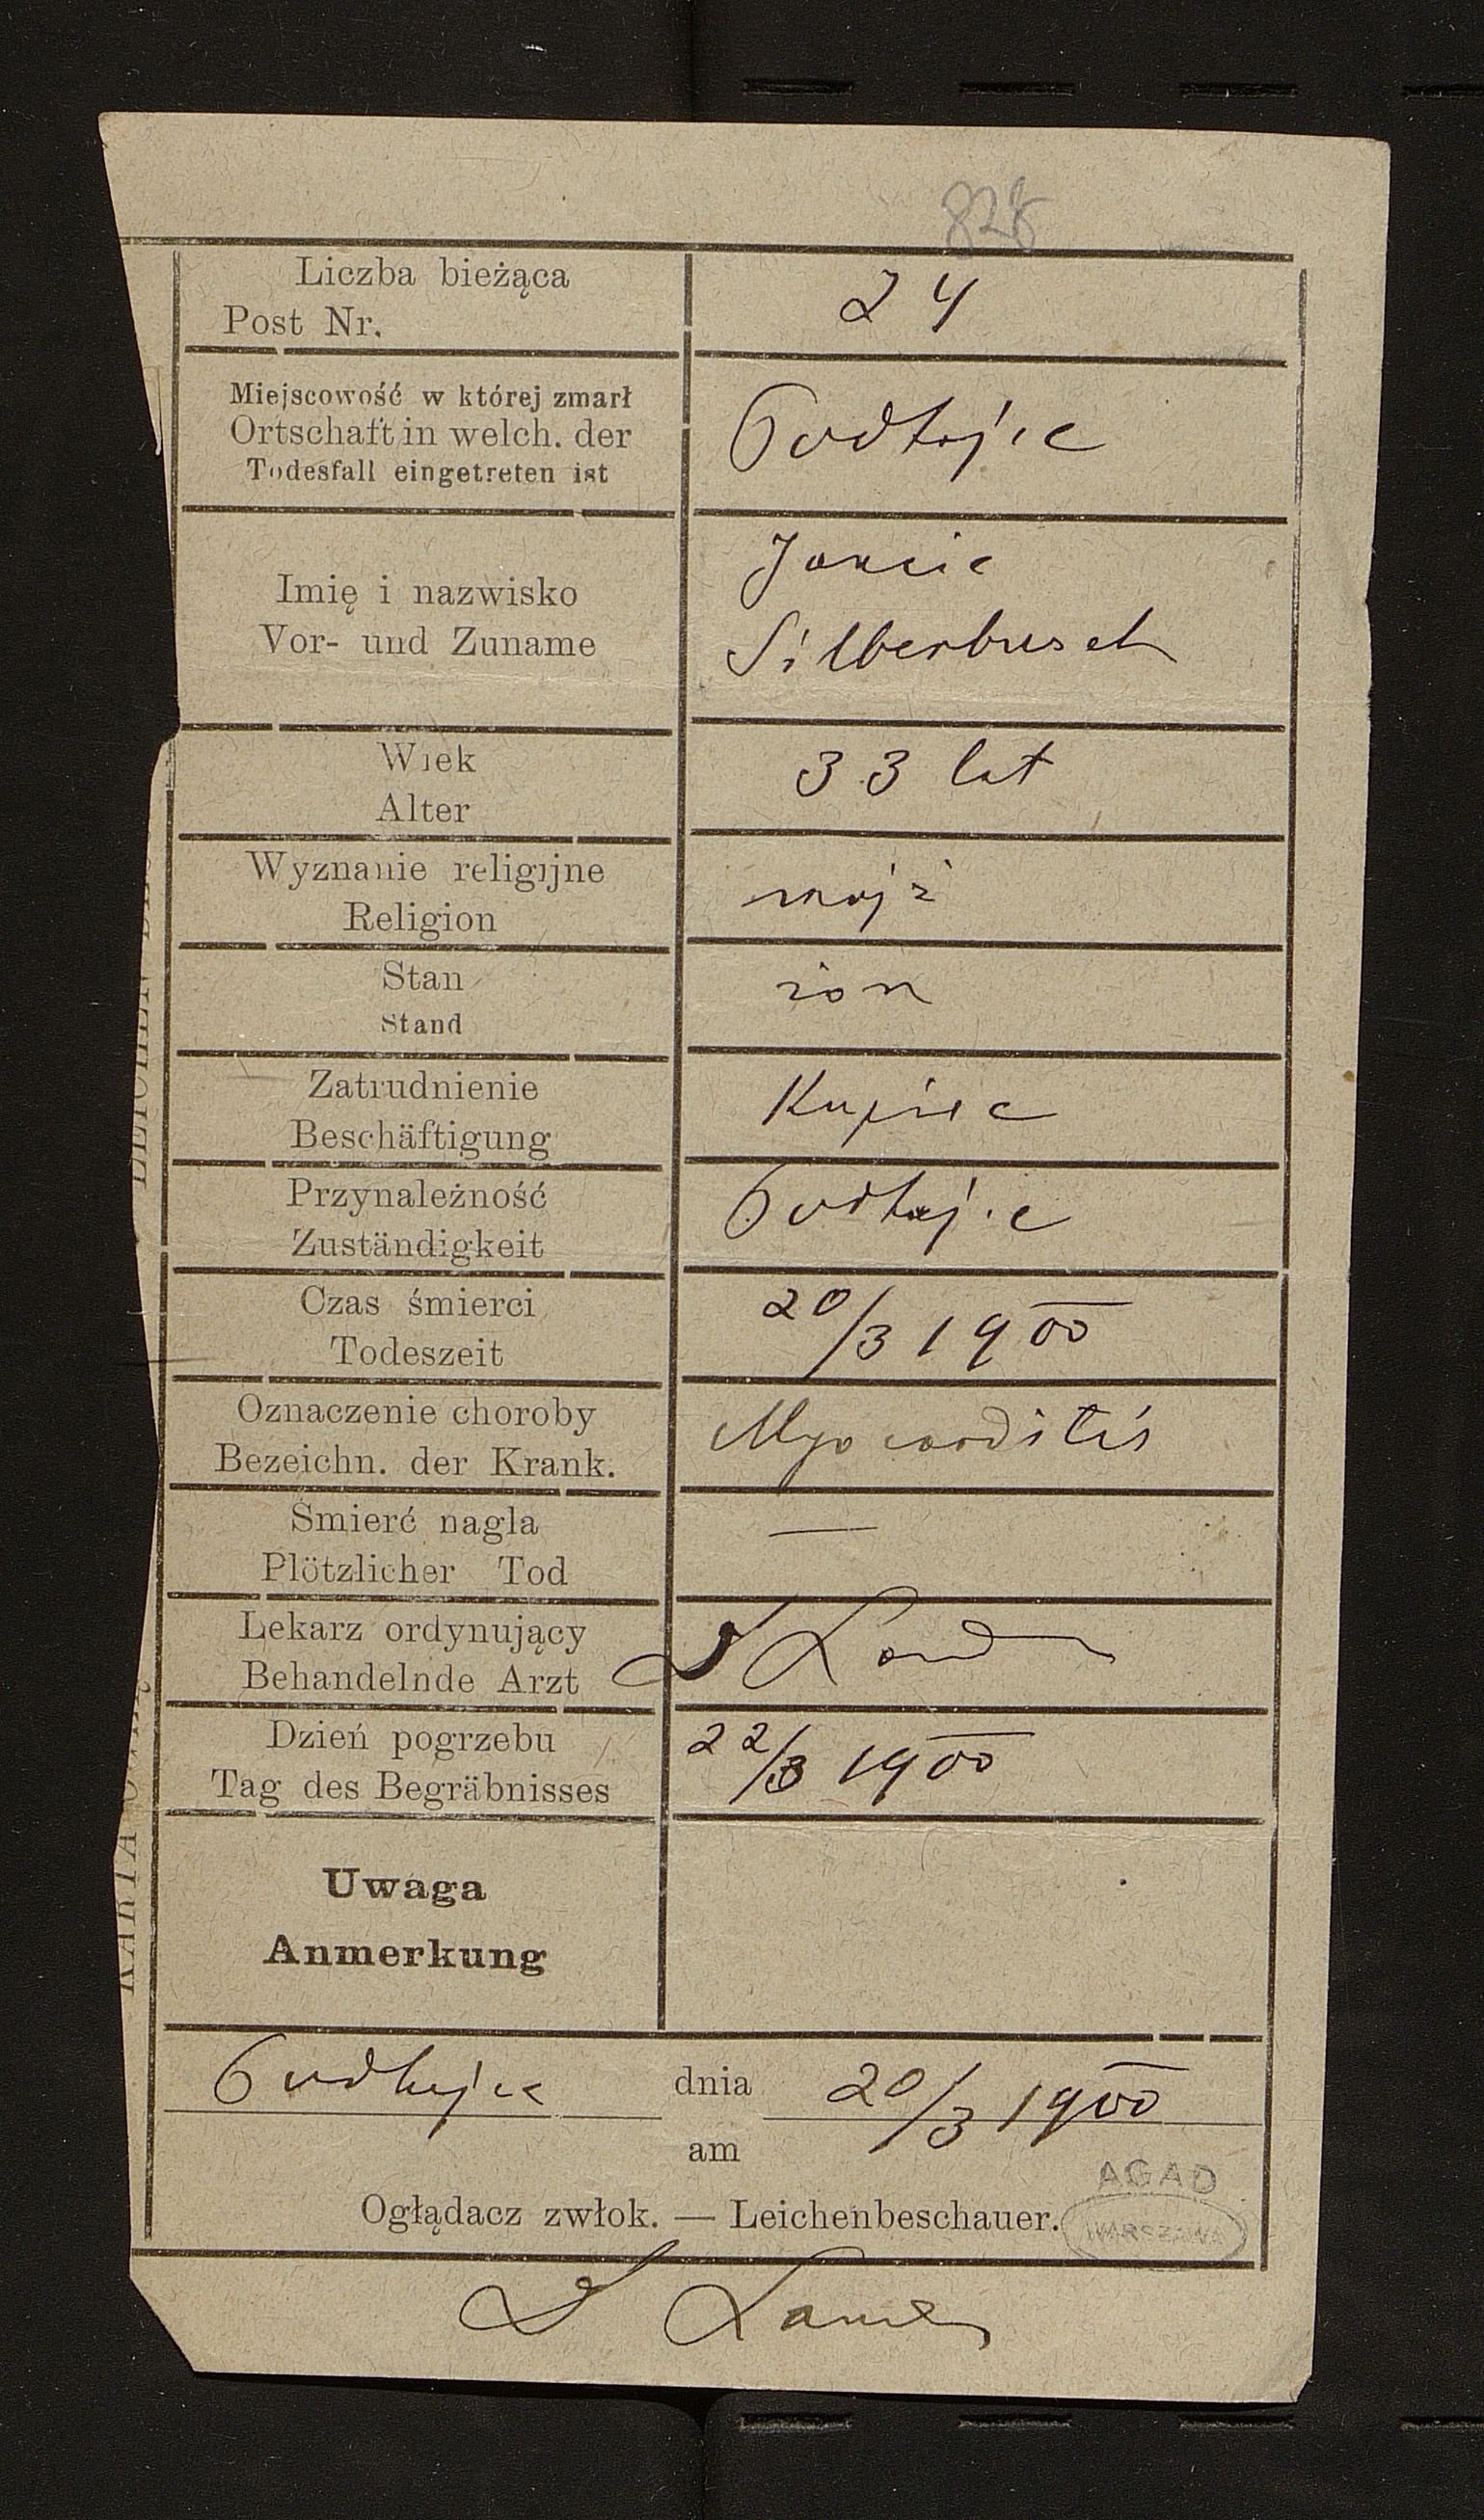 828
Liczba bieżąca
Post Nr.
24
Miejscowość w której zmarł
Ortschaft in welch. der
Todesfall eingetreten ist
Podhajce
Imię i nazwisko
Vor- und Zuname
Silberbusch
Wiek
Alter
33 lat
Wyznanie religijne
Religion
mojż
Stan
Stand
żon
Zatrudnienie
Beschäftigung
Kupiec
Przynależność
Zuständigkeit
Podhajce
Czas śmierci
Todeszeit
20/3 1900
Oznaczenie choroby
Bezeichn. der Krank.
Myocarditis
Śmierć nagla
Plötzlicher Tod
—
Lekarz ordynujący
Behandelnde Arzt
Dzień pogrzebu
Tag des Begräbnisses
22/3 1900
Uwaga
Anmerkung
Podhajce dnia 20/3 1900
am
AGAD
WARSZAWA
Oglądacz zwłok. — Leichenbeschauer.